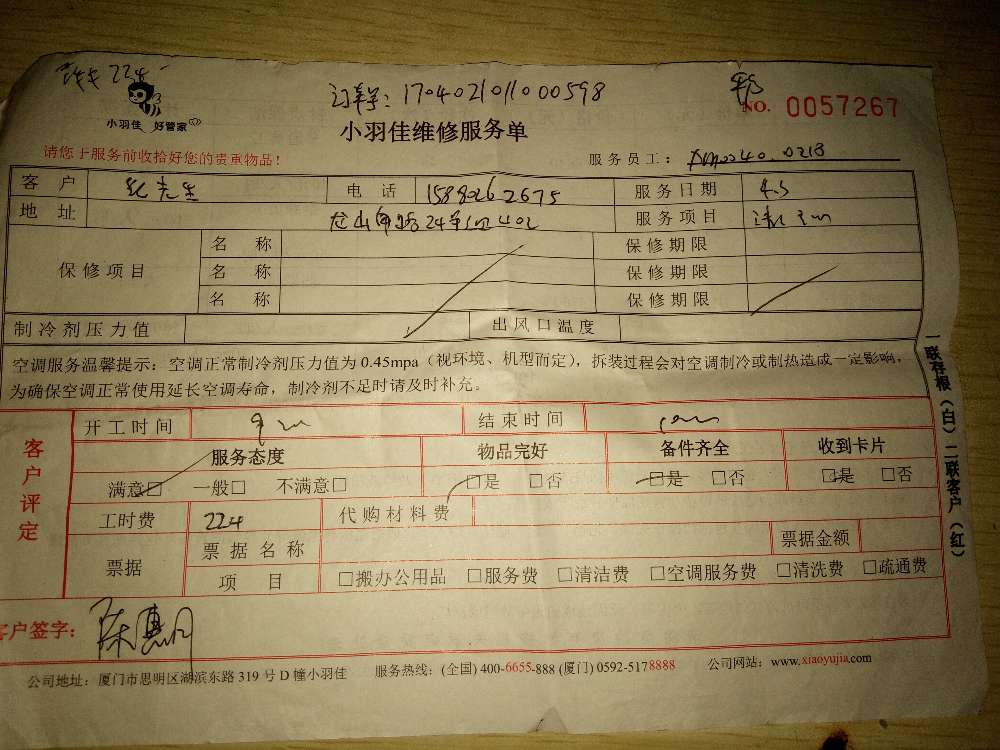 224
订单号：1704021011000598
NO. 0057267
小羽佳 好管家
小羽佳维修服务单
请您于服务前收拾好您的贵重物品！
服务员工：
客户 先生 电话 15880262675 服务日期 4.5
地址 龙山 路24 402 服务项目 清洗
保修项目 名称 保修期限
名称 保修期限
名称 保修期限
制冷剂压力值 出风口温度
空调服务温馨提示：空调正常制冷剂压力值为 0.45mpa（视环境、机型而定），拆装过程会对空调制冷或制热造成一定影响，
为确保空调正常使用延长空调寿命，制冷剂不足时请及时补充。
一联存根（白）二联客户（红）
客户评定
开工时间 结束时间
服务态度 物品完好 备件齐全 收到卡片
满意□ 一般□ 不满意□ □是 □否 □是 □否 □是 □否
工时费 224 代购材料费
票据 票据名称 票据金额
项目 □搬办公用品 □服务费 □清洁费 □空调服务费 □清洗费 □疏通费
客户签字：陈惠
公司地址：厦门市思明区湖滨东路 319 号 D 幢小羽佳 服务热线：(全国) 400-6655-888 (厦门) 0592-5178888 公司网站：www.xiaoyujia.com